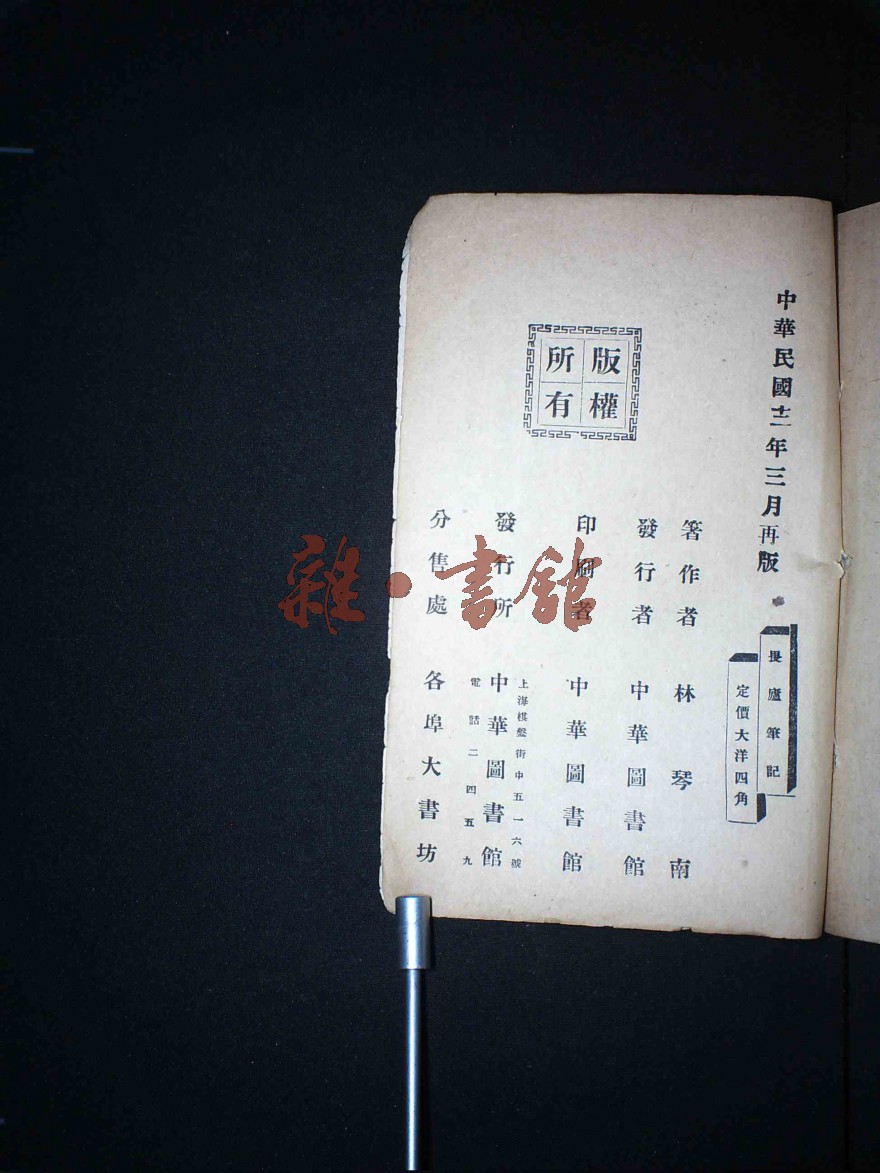 中華民國十二年三月再版
畏廬筆記
定價大洋四角
版權所有
著作者 林琴南
發行者 中華圖書館
印刷者 中華圖書館
上海棋盤街中五一六號
發行所 中華圖書館
電話二四五九
分售處 各埠大書坊
雜·書館